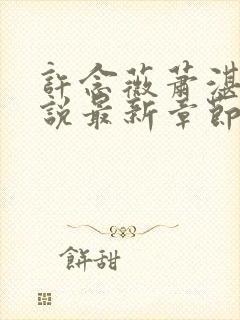 許念薇蕭湛
說最新章節
餅甜